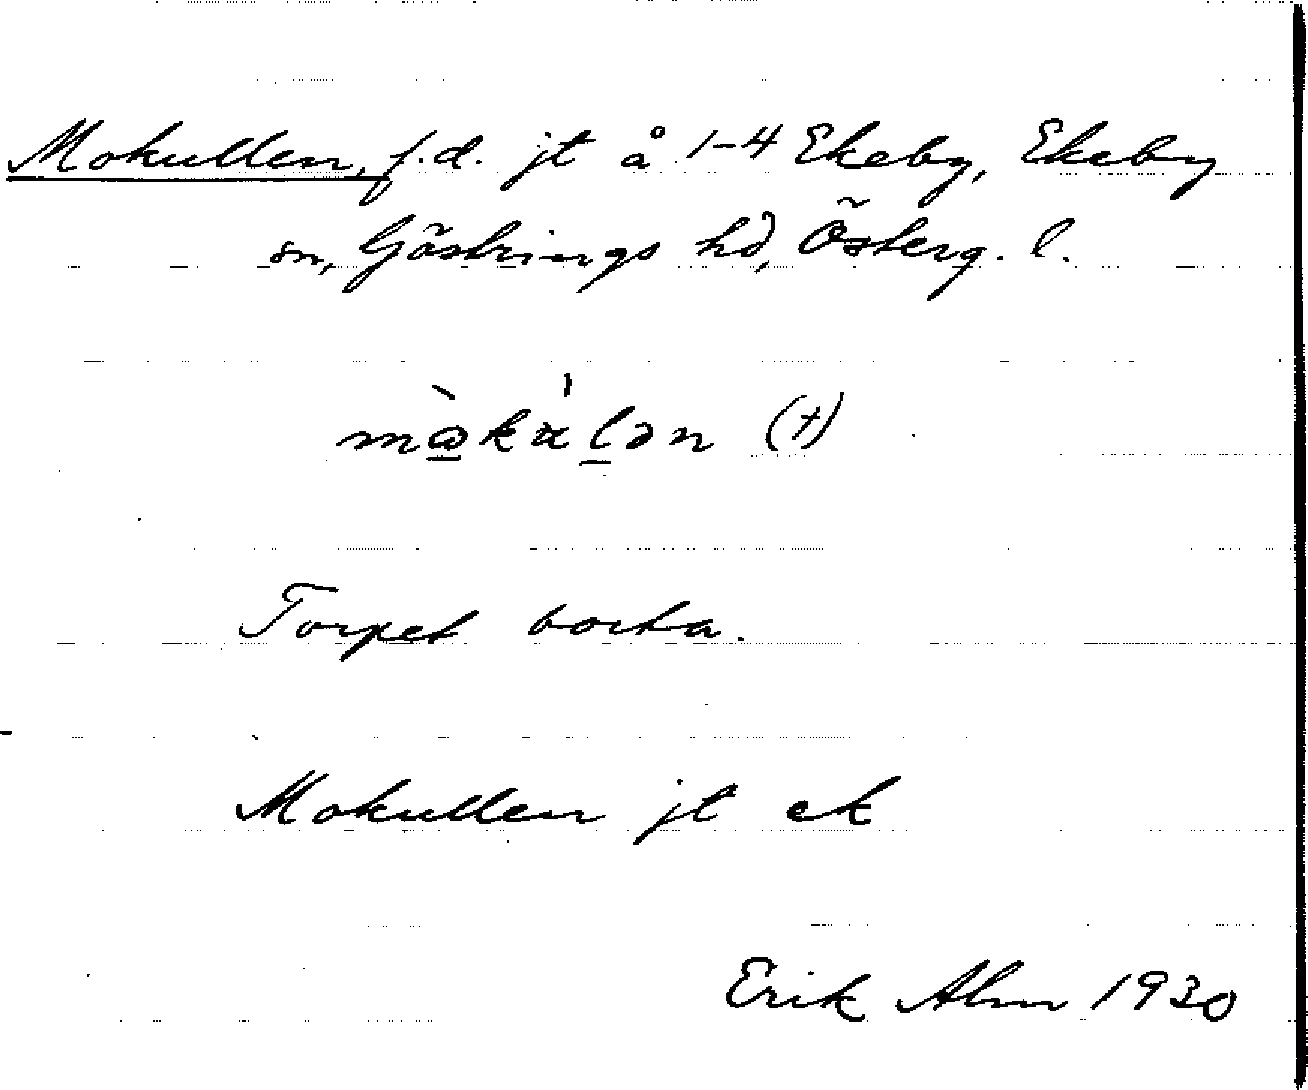 Mokullen, f.d. jt å 1-4 Ekeby, Ekeby
sn, Göstrings hd, Österg. l.
(+)
Torpet borta.
Mokullen jt ek
Erik Alm 1930